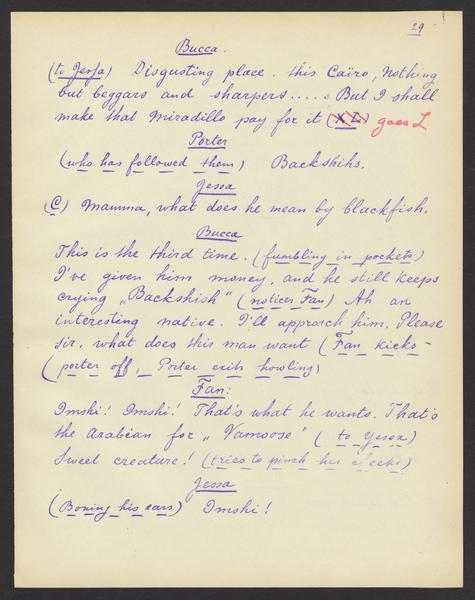 29
Bucca.
(to Jessa) Disgusting place. this Caïro, nothing
but beggars and sharpers..... But I shall
make that Miradillo pay for it (X L) goes L
Porter
(who has followed them) Backshihs.
Jessa
(C) Mamma, what does he mean by blackfish.
Bucca
This is the third time. (fumbling in pockets)
I've given him money, and he still keeps
crying „Backshish" (notices Fan) Ah an
interesting native. I'll approach him. Please
sir, what does this man want (Fan kicks -
(porter off, Porter exits howling)
Fan:
Imshi! Imshi! That's what he wants. That's
the Arabian for „Vamoose" (to Yessa)
Sweet creature! (tries to pinch her cheeks)
Jessa
(Boxing his ears) Imshi!